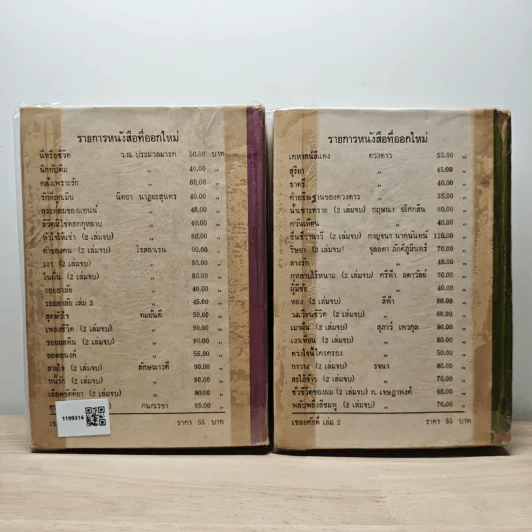 รายการหนังสือที่ออกใหม่
นี่หรือชีวิต ว.ณ ประมวลมารค 50.00 บาท
นิกกับพิม " 40.00 "
คลั่งเพราะรัก " 60.00 "
รักที่ถูกเมิน นิตยา นาฏยะสุนทร 40.00 "
" 48.00 "
ชีวิตมิใช่ดอกกุหลาบ " 40.00 "
หัวใจให้เช่า (2 เล่มจบ) " 80.00 "
ค่าของคน (2 เล่มจบ) โรสลาเรน 90.00 "
เงา (2 เล่มจบ) " 80.00 "
ในฝัน (2 เล่มจบ) " 80.00 "
รอยอาลัย " 40.00 "
รอยอาลัย เล่ม 2 " 45.00 "
สุดหัวใจ ทมยันตี 50.00 "
เพลงชีวิต (2 เล่มจบ) " 90.00 "
รอยมลทิน (2 เล่มจบ) " 90.00 "
ยอดอนงค์ " 55.00 "
สายใจ (2 เล่มจบ) ลักษณาวดี 90.00 "
(2 เล่มจบ) " 80.00 "
เลือดขัตติยา (2 เล่มจบ) " 90.00 "
(2 เล่มจบ) กนกเรขา 85.00 "
ราคา 55 บาท
1199316
รายการหนังสือที่ออกใหม่
เคหาสน์สีแดง ดวงดาว 55.00 "
สุริยา " 45.00 "
ธาตรี " 40.00 "
คำอธิษฐานของดวงดาว " 35.00 "
น้ำเซาะทราย (2 เล่มจบ) กฤษณา อโศกสิน 80.00 "
ควันเทียน " 40.00 "
(2 เล่มจบ) กาญจนา นาคนันทน์ 110.00 "
ริษยา (2 เล่มจบ) จุลลดา ภักดีภูมินทร์ 70.00 "
ลางรัก " 48.00 "
กุหลาบไร้หนาม (2 เล่มจบ) ศรีฟ้า ลดาวัลย์ 76.00 "
ผู้มีชัย " 40.00 "
หลง (2 เล่มจบ) สีฟ้า 80.00 "
วงเวียนชีวิต (2 เล่มจบ) " 80.00 "
เมาฝัน (2 เล่มจบ) สุภาว์ เทวกุล 90.00 "
เงาเทียน (2 เล่มจบ) " 80.00 "
ดวงใจนี้ใครครอง " 50.00 "
(2 เล่มจบ) รจนา 80.00 "
สะใภ้จ้าว (2 เล่มจบ) " 70.00 "
ชั่วชีวิตของผม (2 เล่มจบ) ก. เจษฎาพงศ์ 68.00 "
พลับพลึงสีชมพู (2 เล่มจบ) " 76.00 "
เชลยศักดิ์ เล่ม 2 ราคา 55 บาท